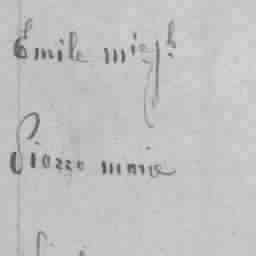 Émile mich
Pierre marie